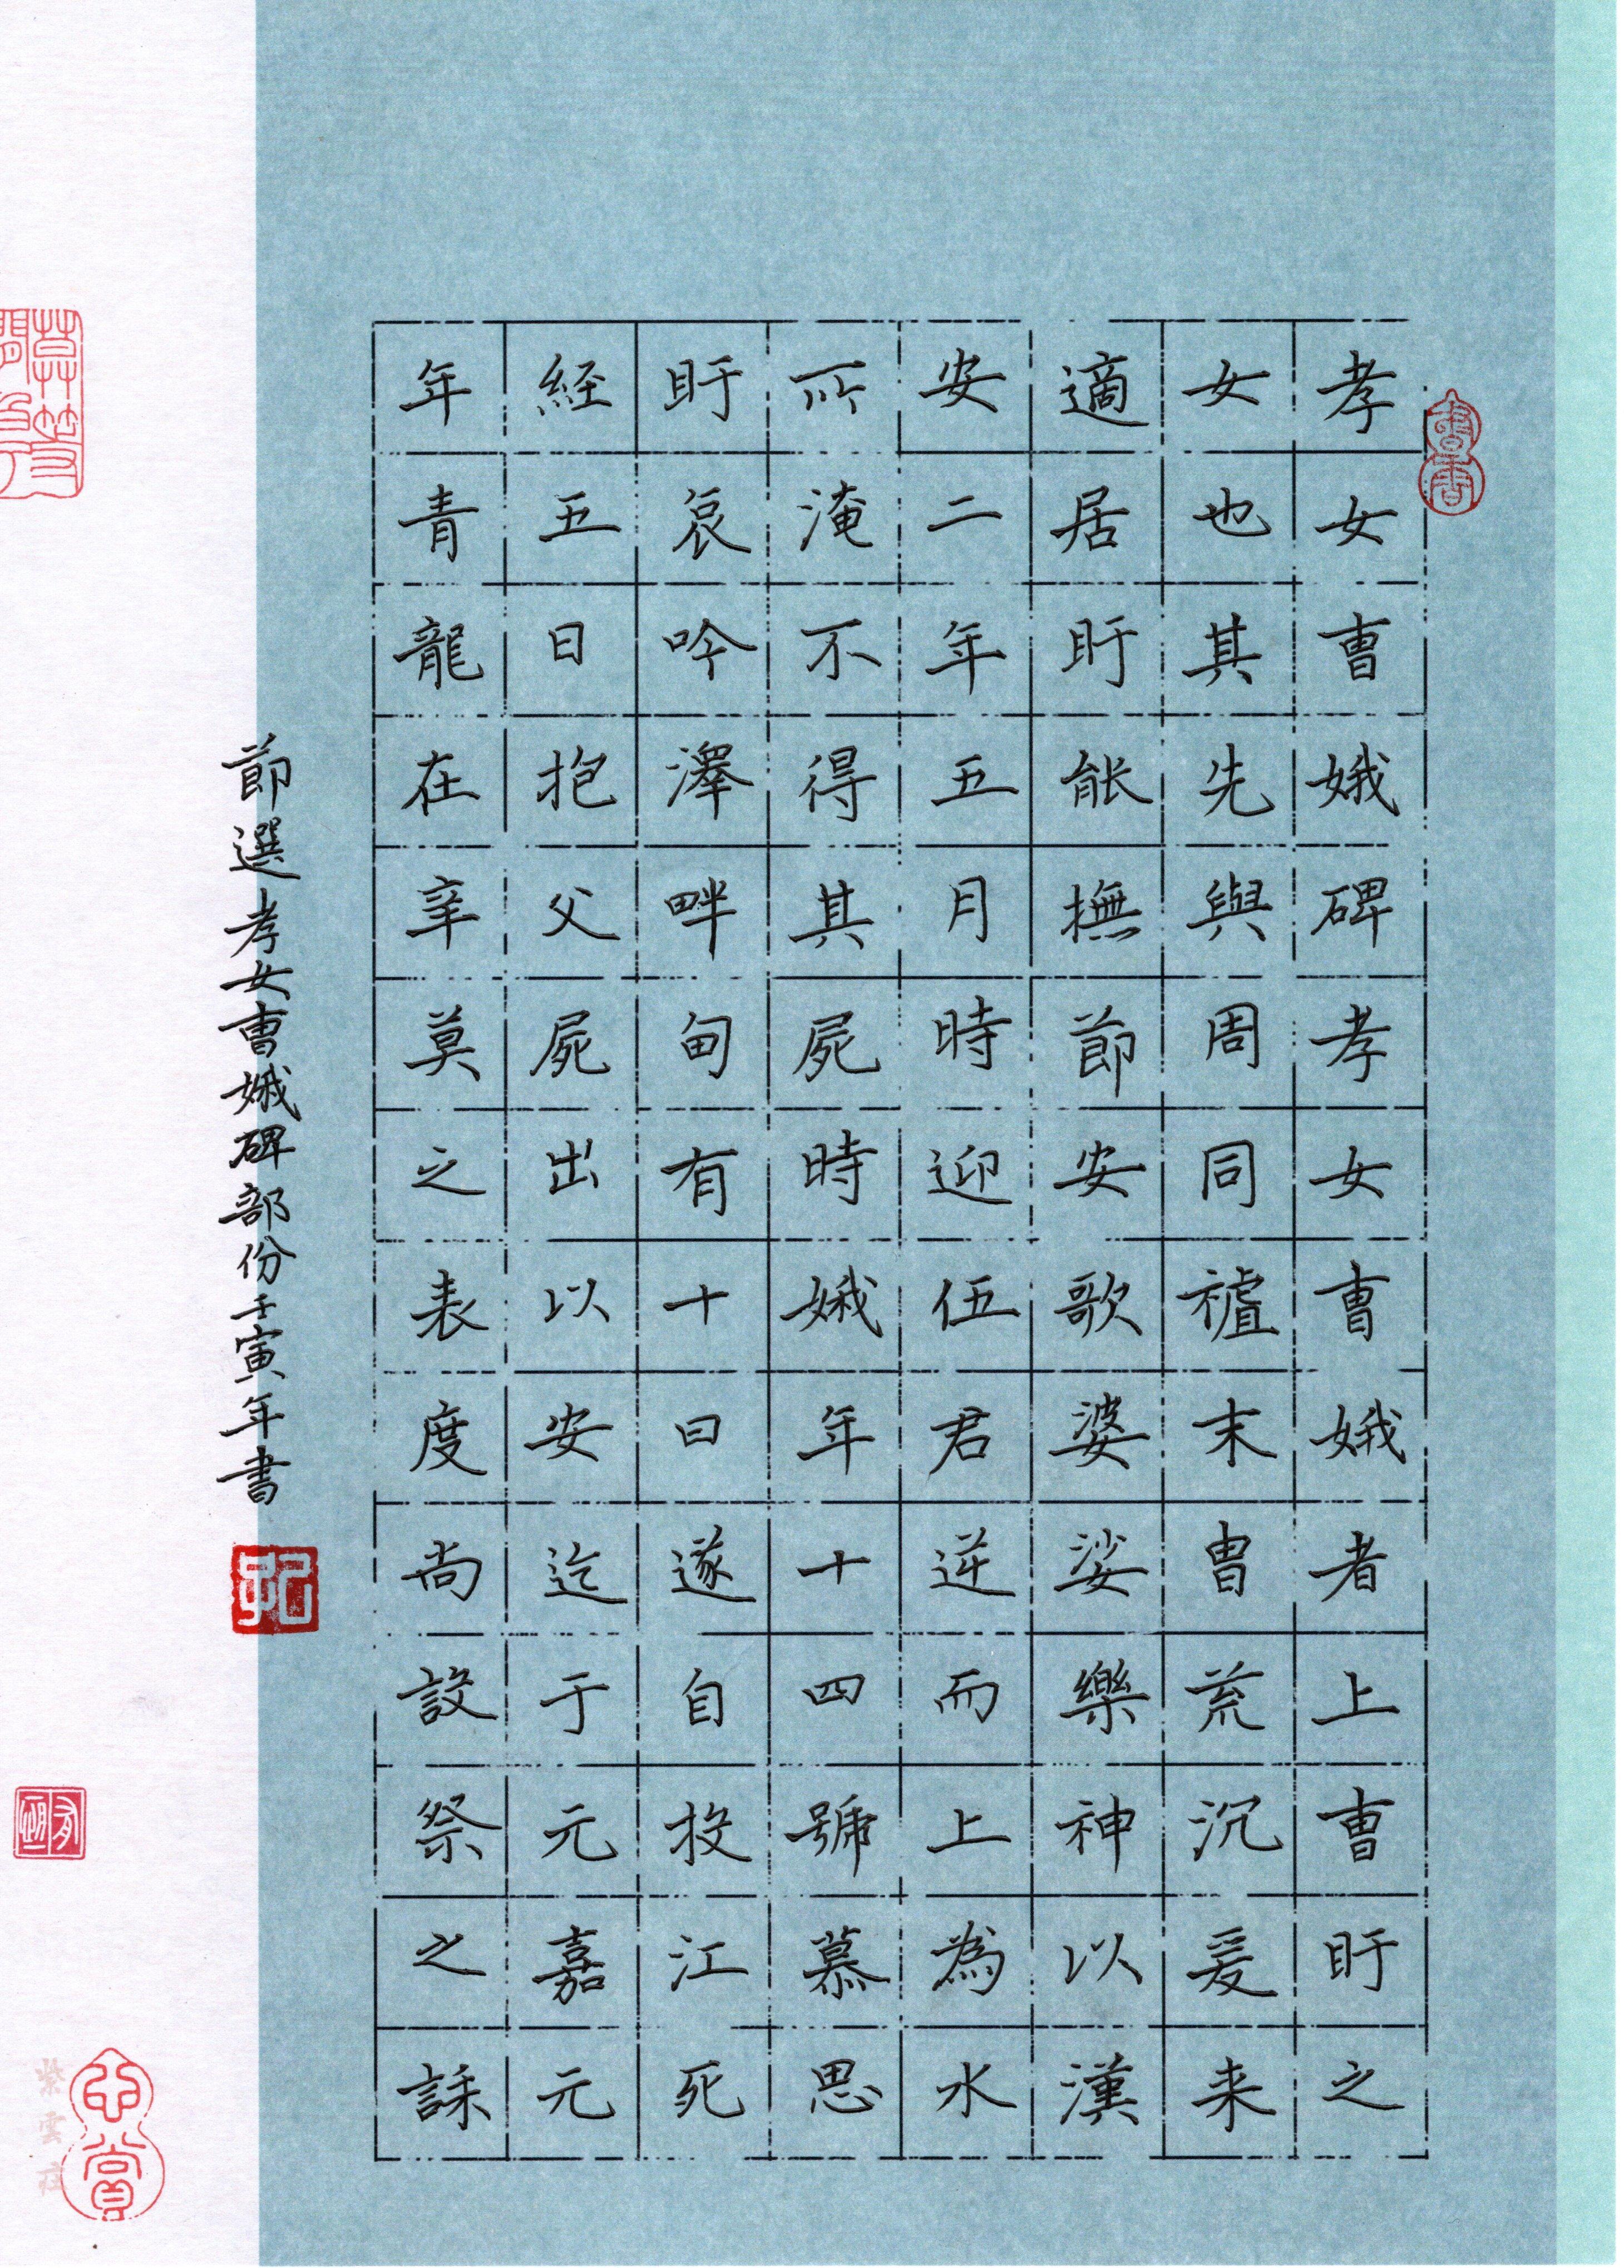 孝女曺娥碑孝女曺娥者上曺盱之
女也其先與周同禃末胄荒沉爰来
適居盱能撫節安歌婆娑樂神以漢
安二年五月時迎伍君逆而上為水
所淹不得其屍時娥年十四號慕思
盱哀吟澤畔旬有十日遂自投江死
経五日抱父屍出以安迄于元嘉元
年青龍在辛莫之表度尚設祭之誄
節選孝女曺娥碑部份壬寅年書
書香